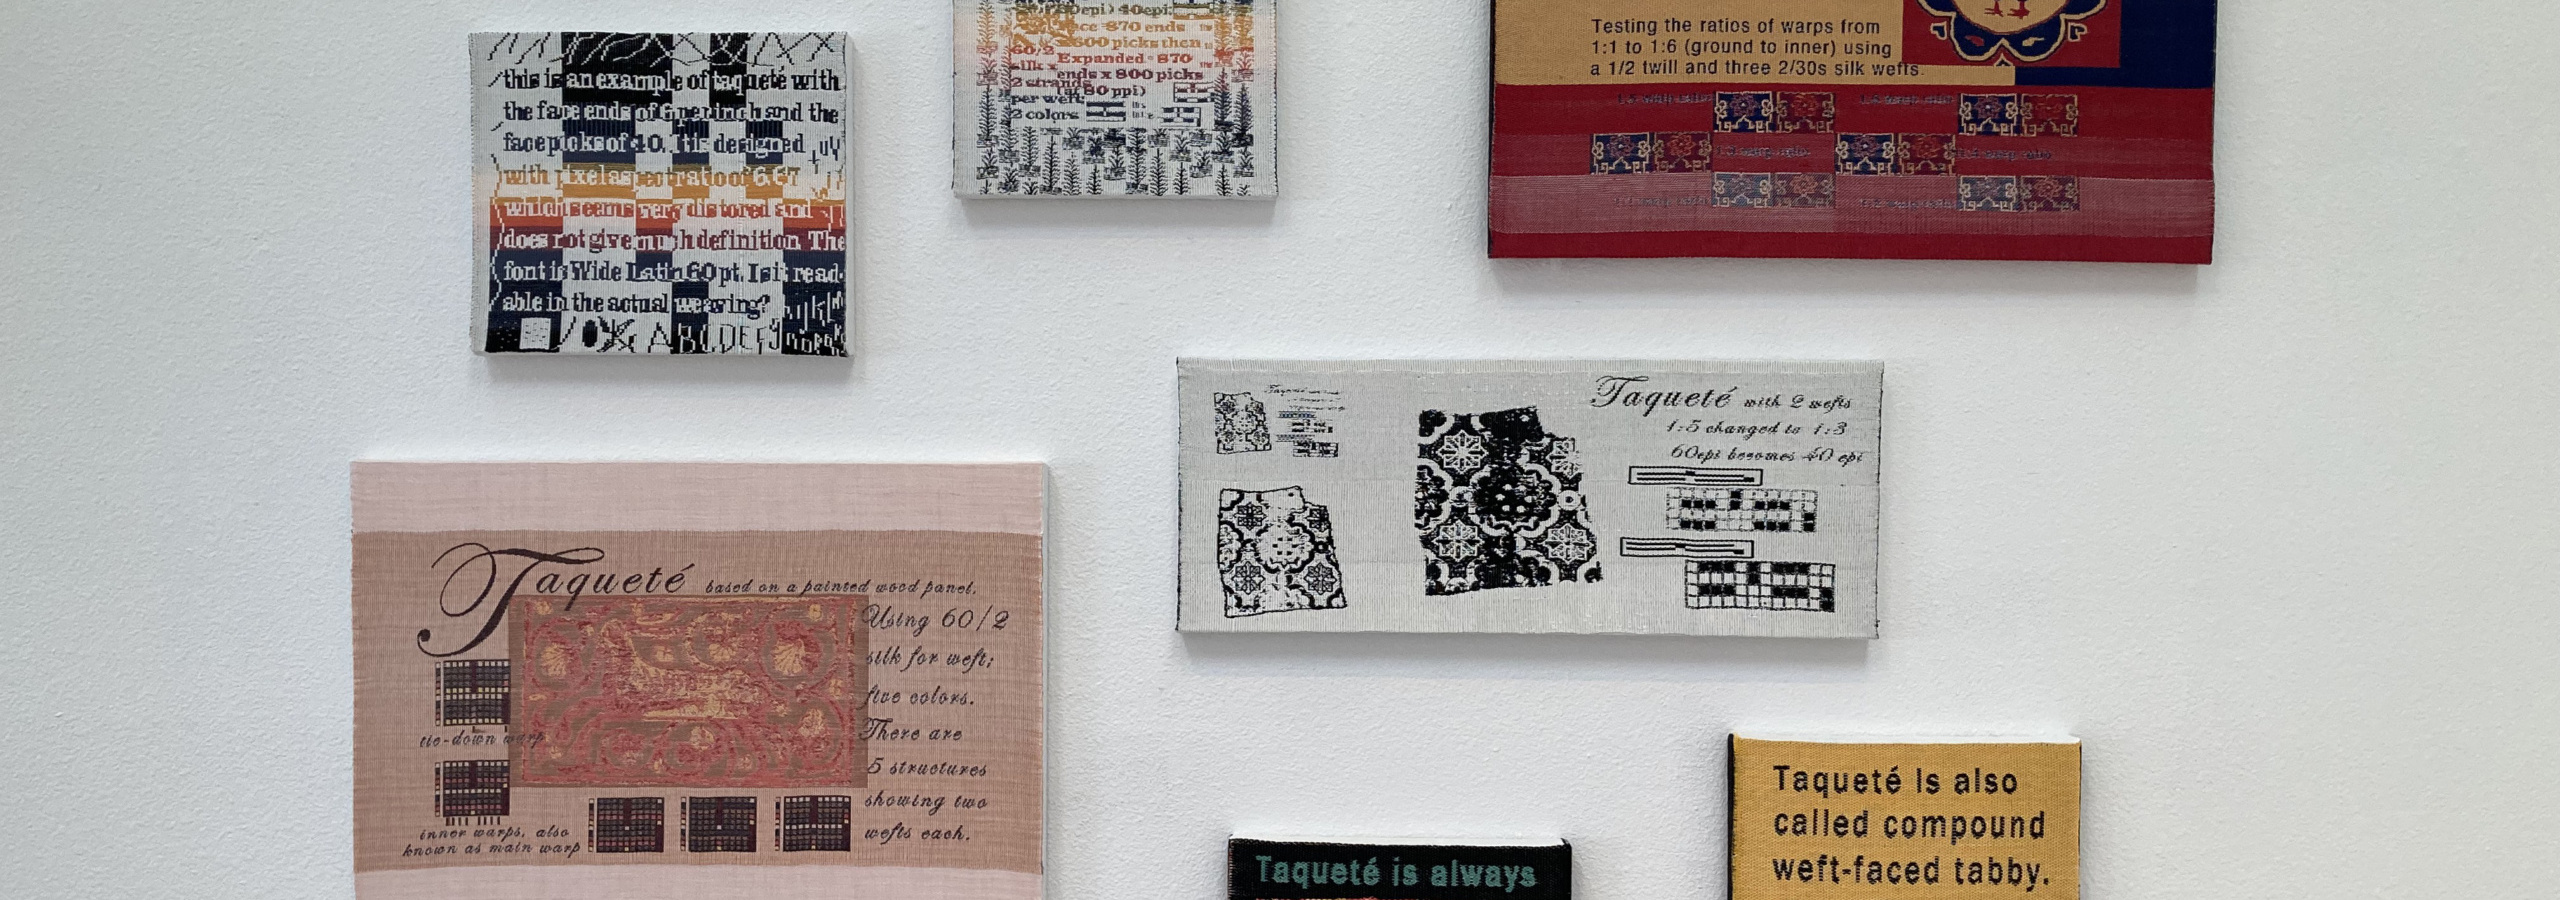 this is an example of taqueté with
the face ends of 6 per inch and the
face picks of 40. It is designed
with pixel aspect ratio of 6.67
which seems very distored and
does not give much definition. The
font is Wide Latin 60 pt. Is it read-
able in the actual weaving?
ABCDEFG
40epi.
870 ends
600 picks then
60/2
silk x
Expanded 870
ends x 800 picks
2 strands
(at 80 ppi)
per weft.
2 colors
Testing the ratios of warps from
1:1 to 1:6 (ground to inner) using
a 1/2 twill and three 2/30s silk wefts.
Taqueté with 2 wefts
1:5 changed to 1:3
60epi becomes 40 epi
Taqueté based on a painted wood panel.
Using 60/2
silk for weft;
five colors.
There are
5 structures
showing two
wefts each.
tie-down warp
inner warps, also
known as main warp
Taqueté is always
Taqueté is also
called compound
weft-faced tabby.